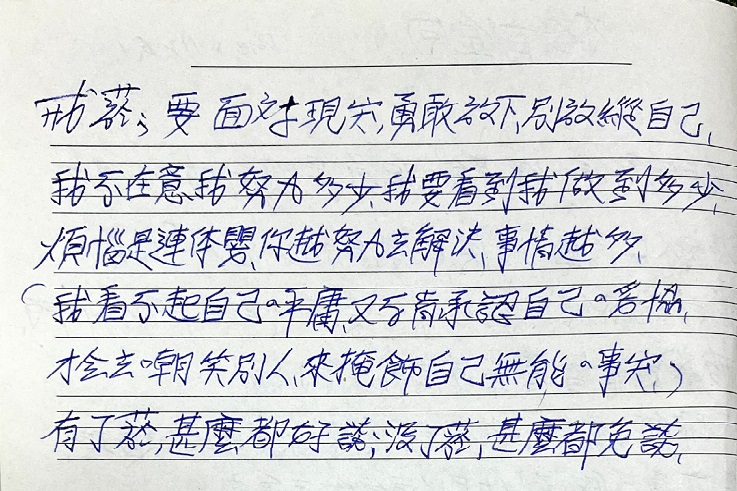 戒菸；要面对現实，勇敢放下，別放縱自己，
我不在意我努力多少，我要看到我做到多少，
煩惱是連体嬰，你越努力去解決，事情越多，
（我看不起自己的平庸，又不肯承認自己的妥協，
才会去嘲笑別人，來掩飾自己無能的事实，）
有了菸，甚麼都好談；沒了菸，甚麼都免談，